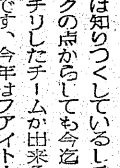 は知りつくしているし、
クの点からしても今迄
チリしたチームが出来
です、今年はファイト・